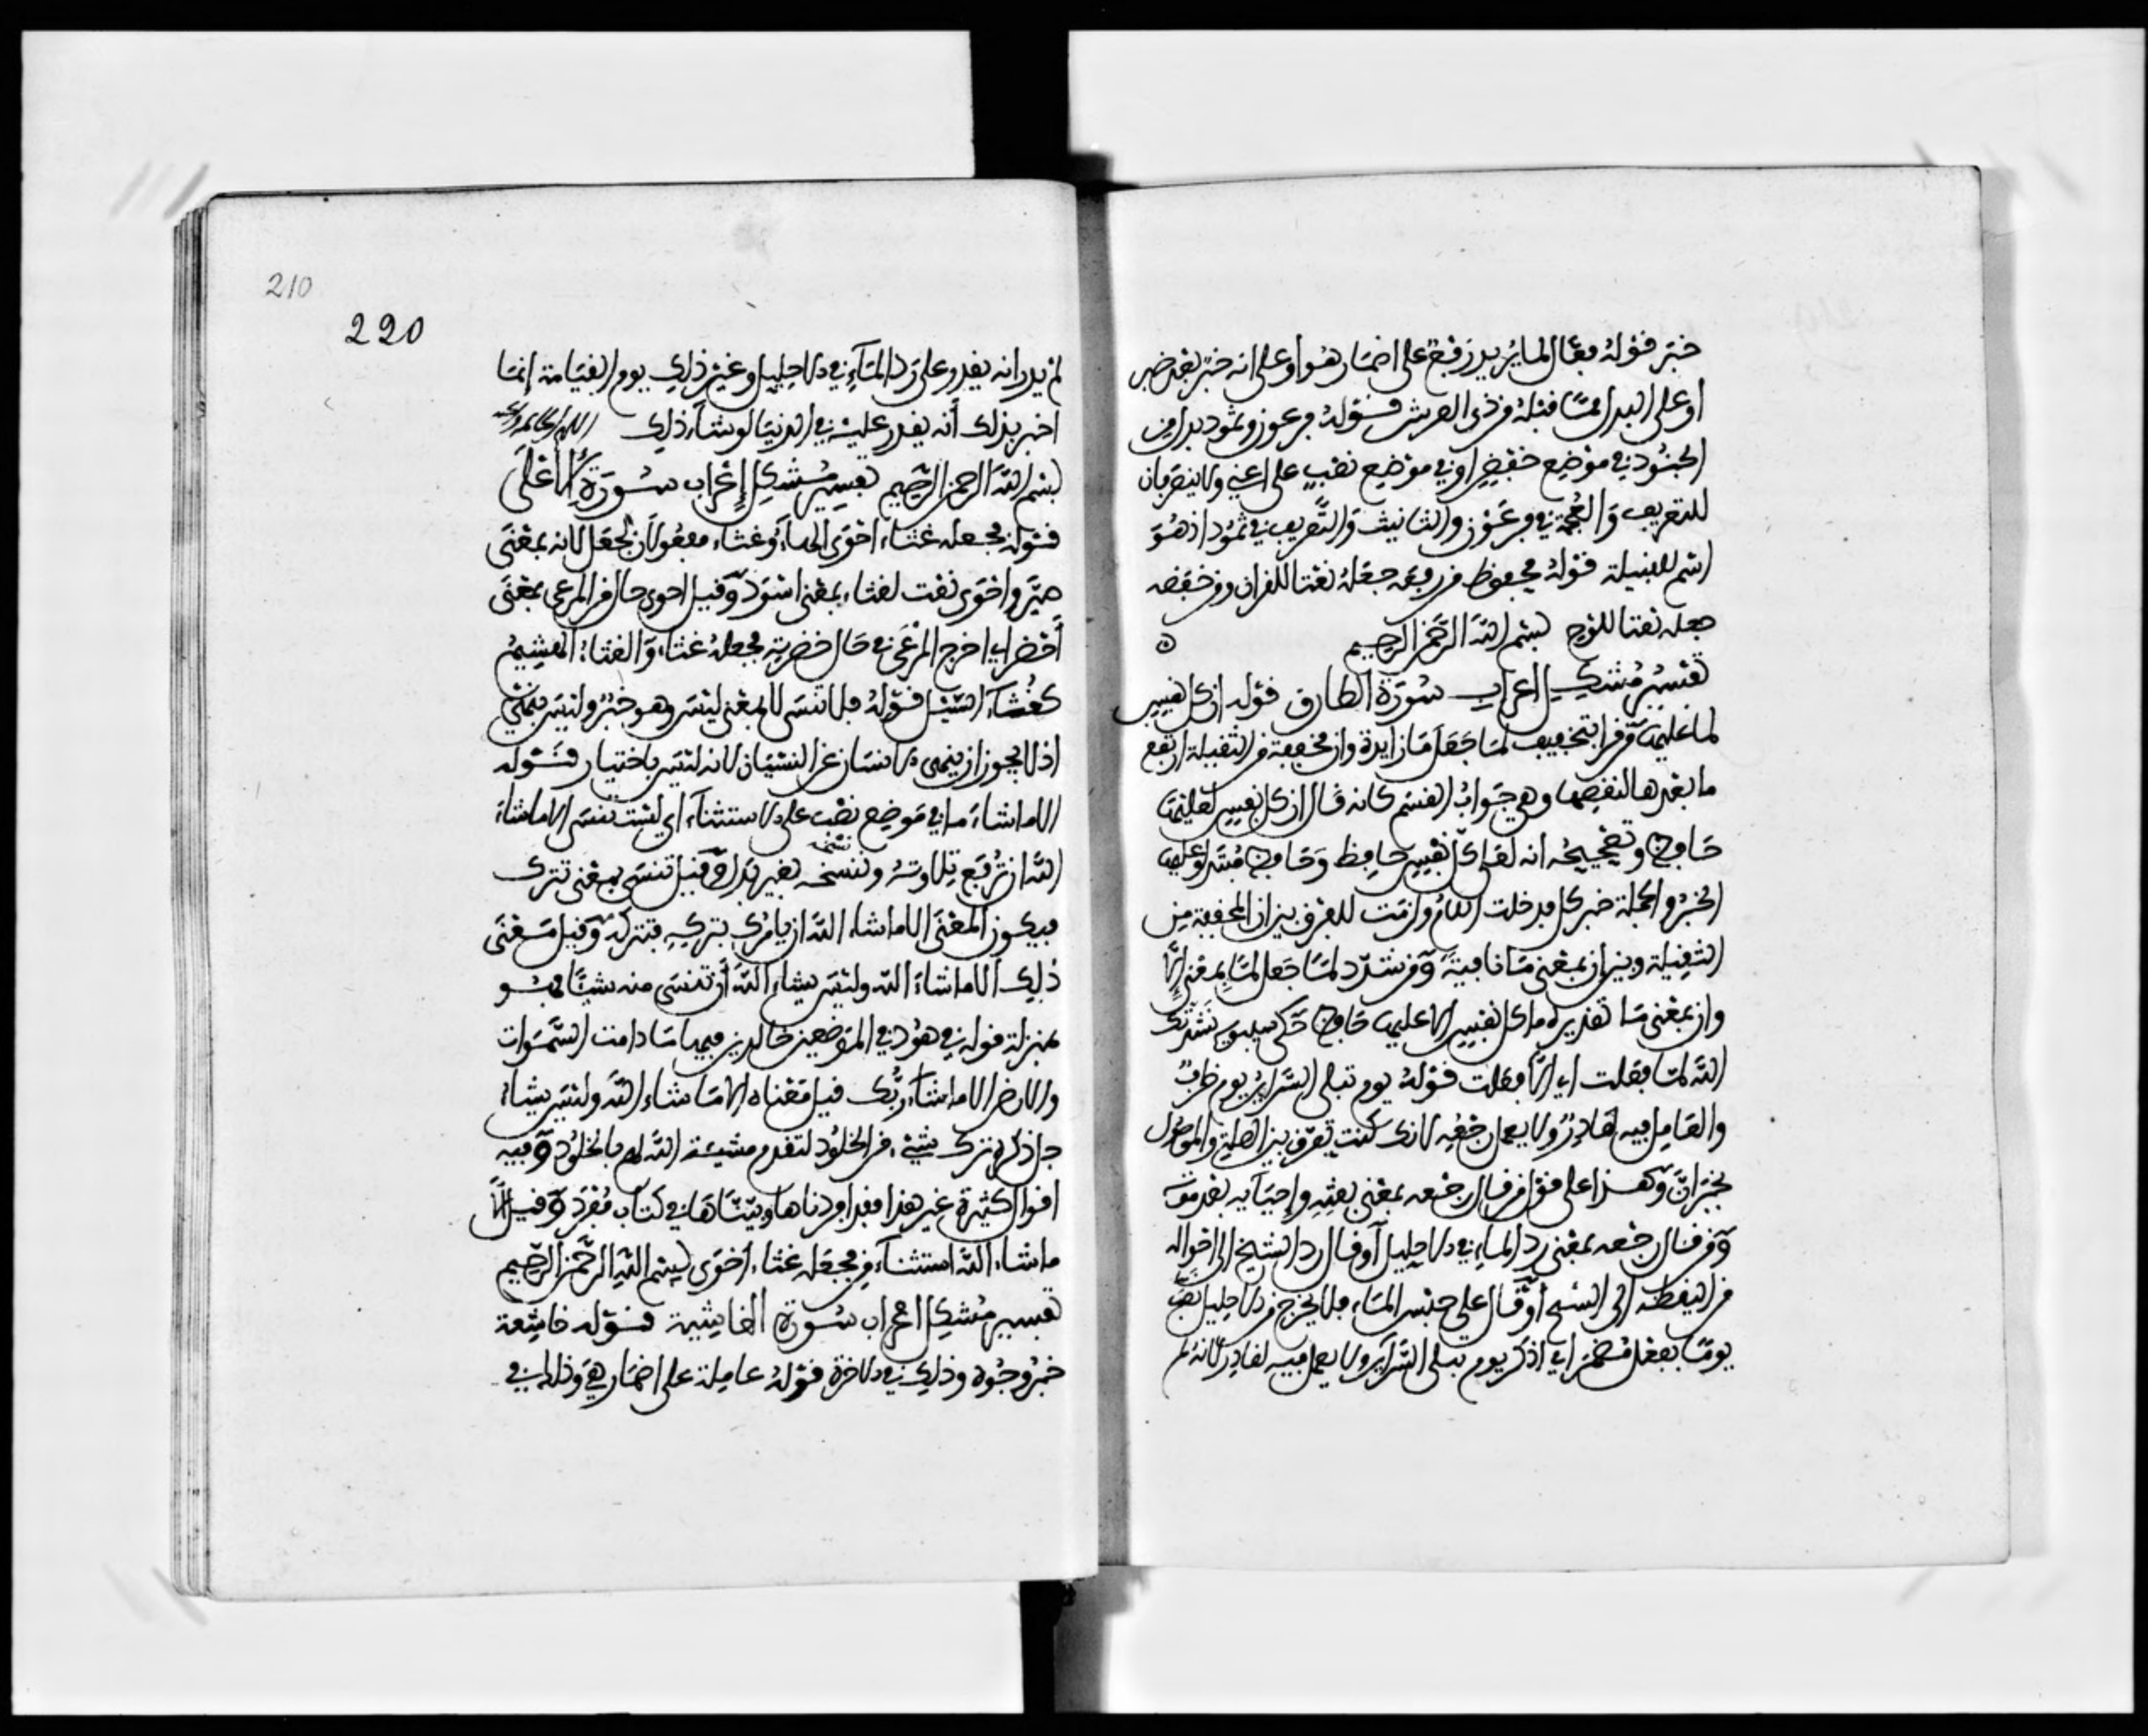 خبر قوله فعال لما يريد رفع على اضمار هو او على انه خبر بعد خبر
او على البدل مما قبله من ذي العرش قوله فرعون وثمود بدل من
الجنود في موضع خفض او في موضع نصب على اعني ولا ينصرفان
للتعريف والعجمة في فرعون والتانيث والتعريف في ثمود اذ هو
اسم للقبيلة قوله محفوظ من رفعه جعله نعتا للقران ومن خفضه
جعله نعتا للوح بسم الله الرحمن الرحيم
تفسير مشكل اعراب سورة الطارق قوله ان كل نفس
لما عليها من قرا بتخفيف لما جعل ما زايدة وان مخففة من الثقيلة ارتفع
ما بعدها لنقصها وهي جواب القسم كانه قال ان كل نفس لعليها
حافظ وتصحيحه انه لعلى كل نفس حافظ وحافظ مبتدا وعليها
الخبر والجملة خبر كل فدخلت اللام ولزمت للفرق بين ان المخففة من
الثقيلة وبين ان بمعنى ما نافية ومن شدد لما جعل لما بمعنى الا
وان بمعنى ما تقديره ما كل نفس الا عليها حافظ حكى سيبويه نشدتك
الله لما فعلت اي الا فعلت قوله يوم تبلى السراير يوم ظرف
والعامل فيه لقادر ولا يعمل رجعه لانك كنت تفرق بين الصلة والموصول
بخبر ان وهذا على قول من قال رجعه بمعنى بعثه واحيايه بعد موته
ومن قال رجعه بمعنى رد الماء في الاحليل او قال رد الشيخ الى احواله
من النطفة الى الشيخ او قال على حبس الماء فلا يخرج من الاحليل نصب
يوما بفعل مضمر اي اذكر يوم تبلى السراير ولا يعمل فيه لقادر لانه لم
210
220
لم يرد انه يقدر على رد الماء في الاحليل وغير ذلك يوم القيامة انما
اخبر بذلك انه يقدر عليه في الدنيا لو شاء ذلك
بسم الله الرحمن الرحيم تفسير مشكل اعراب سورة الاعلى
قوله فجعله غثاء احوى الهاء وغثاء مفعولان لجعل لانه بمعنى
صير واحوى نعت لغثاء بمعنى اسود وقيل احوى حال من المرعى بمعنى
اخضر اي اخرج المرعى في حال خضرته فجعله غثاء والغثاء الهشيم
كغثاء السيل قوله فلا تنسى لا بمعنى ليس وهو خبر وليس بنهي
اذ لا يجوز ان ينهى الانسان عن النسيان لانه ليس باختيار قوله
الا ما شاء ما في موضع نصب على الاستثناء اي لست تنسى الا ما شاء
الله ان ترفع تلاوته وننسخه بغير بدل وقيل تنسى بمعنى تترك
فيكون المعنى الا ما شاء الله ان يامرك بتركه فتتركه وقيل معنى
ذلك الا ما شاء الله وليس يشاء الله ان تنسى منه شيئا فهو
بمنزلة قوله في هود في الموضعين خالدين فيها ما دامت السموات
والارض الا ما شاء ربك قيل معناه الا ما شاء الله وليس يشاء
جل ذكره ترك شيء من الخلود لتقدم مشيئة الله لهم بالخلود وفيه
اقوال كثيرة غير هذا فقد اوردناها وبيناها في كتاب مفرد وقيل الا
ما شاء الله استثناء من فجعله غثاء احوى بسم الله الرحمن الرحيم
تفسير مشكل اعراب سورة الغاشية قوله خاشعة
خبر وجوه وذلك في الاخرة قوله عاملة على اضمار هي وذلك في